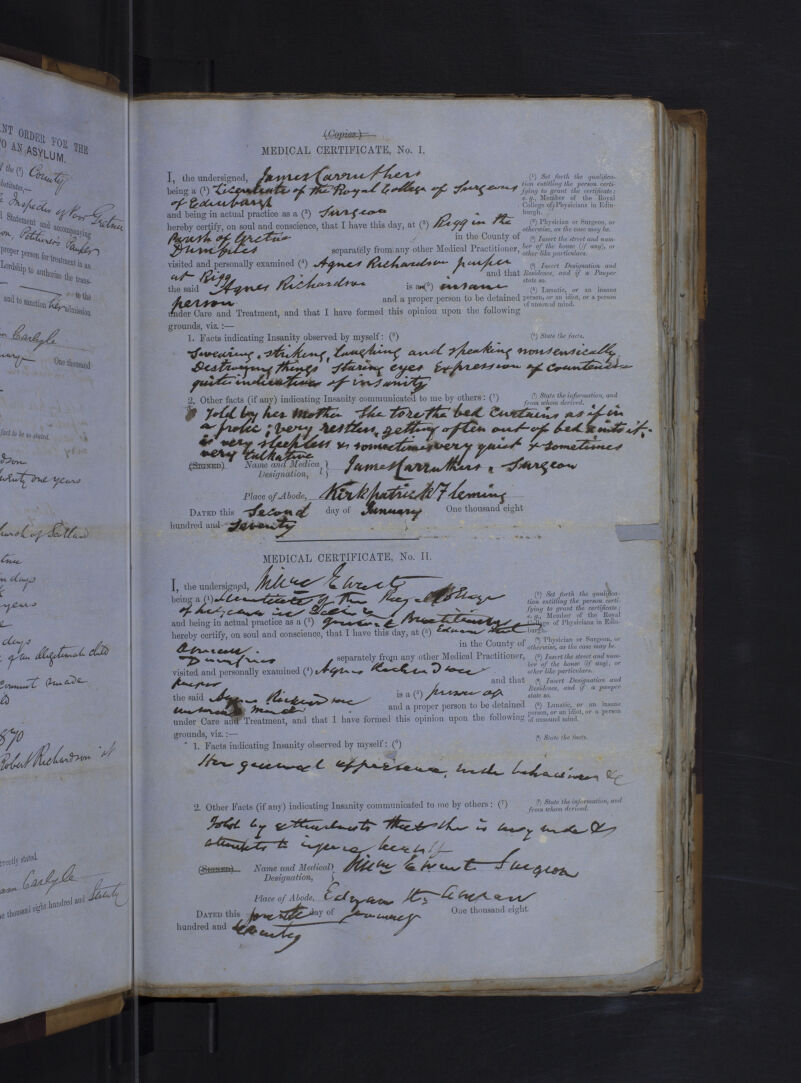 NT ORDER FOR THE
O AN ASYLUM.
the (¹) County
Inspector of Poor Gretna
Statement and accompanying
Petitioner
proper person for treatment in an
Lordship to authorise the trans-
to the
and to sanction her admission
Carlyle
One thousand
fact to be so stated.
dson
twenty one years
days
years
days
of an illegitimate child
made
1870
Robert Richardson at
correctly stated.
Carlyle
One thousand eight hundred and Seventy
(Copies)
MEDICAL CERTIFICATE, No. I.
I, the undersigned, James Carruthers
being a (¹) Licentiate of the Royal College of Surgeons
of Edinburgh
and being in actual practice as a (²) Surgeon
hereby certify, on soul and conscience, that I have this day, at (³) Rigg in the
Parish of Gretna in the County of
Dumfries separately from any other Medical Practitioner,
visited and personally examined (⁴) Agnes Richardson pauper
at Rigg and that
the said Agnes Richardson is a(⁵) insane
person and a proper person to be detained
under Care and Treatment, and that I have formed this opinion upon the following
grounds, viz. :—
1. Facts indicating Insanity observed by myself: (⁶)
Swearing, striking, laughing and speaking nonsensically
Destroying things staring eyes Expression of countenance
quite indicative of insanity
2. Other facts (if any) indicating Insanity communicated to me by others: (⁷)
Told by her mother She tore the bed curtains as if in
a frolic; very restless, getting often out of bed & into it.
is very sleepless & sometimes very quiet & sometimes
very talkative
(Signed) Name and Medical Designation, James Carruthers, Surgeon
Place of Abode, Kirkpatrick Fleming
Dated this Second day of January One thousand eight
hundred and Seventy
(¹) Set forth the qualification entitling the person certifying to grant the certificate; e.g., Member of the Royal College of Physicians in Edinburgh.
(²) Physician or Surgeon, or otherwise, as the case may be.
(³) Insert the street and number of the house (if any), or other like particulars.
(⁴) Insert Designation and Residence, and if a Pauper state so.
(⁵) Lunatic, or an insane person, or an idiot, or a person of unsound mind.
(⁶) State the facts.
(⁷) State the information, and from whom derived.
MEDICAL CERTIFICATE, No. II.
I, the undersigned, Ewart
being a (¹) Licentiate of the Royal College
of
and being in actual practice as a (²) general Practitioner
hereby certify, on soul and conscience, that I have this day, at (³)
Annan in the County of
Dumfries separately from any other Medical Practitioner,
visited and personally examined (⁴) Agnes Richardson
pauper and that
the said Agnes Richardson is a (⁵) person of
unsound mind and a proper person to be detained
under Care and Treatment, and that I have formed this opinion upon the following
grounds, viz. :—
1. Facts indicating Insanity observed by myself: (⁶)
Her general appearance, behaviour &c
2. Other Facts (if any) indicating Insanity communicated to me by others: (⁷)
Told by attendants that she is &
attempts to injure herself
(Signed) Name and Medical Designation, Ewart Surgeon
Place of Abode, Annan
Dated this fourth day of January One thousand eight
hundred and Seventy
(¹) Set forth the qualification entitling the person certifying to grant the certificate; e.g., Member of the Royal College of Physicians in Edinburgh.
(²) Physician or Surgeon, or otherwise, as the case may be.
(³) Insert the street and number of the house (if any), or other like particulars.
(⁴) Insert Designation and Residence, and if a pauper state so.
(⁵) Lunatic, or an insane person, or an idiot, or a person of unsound mind.
(⁶) State the facts.
(⁷) State the information, and from whom derived.